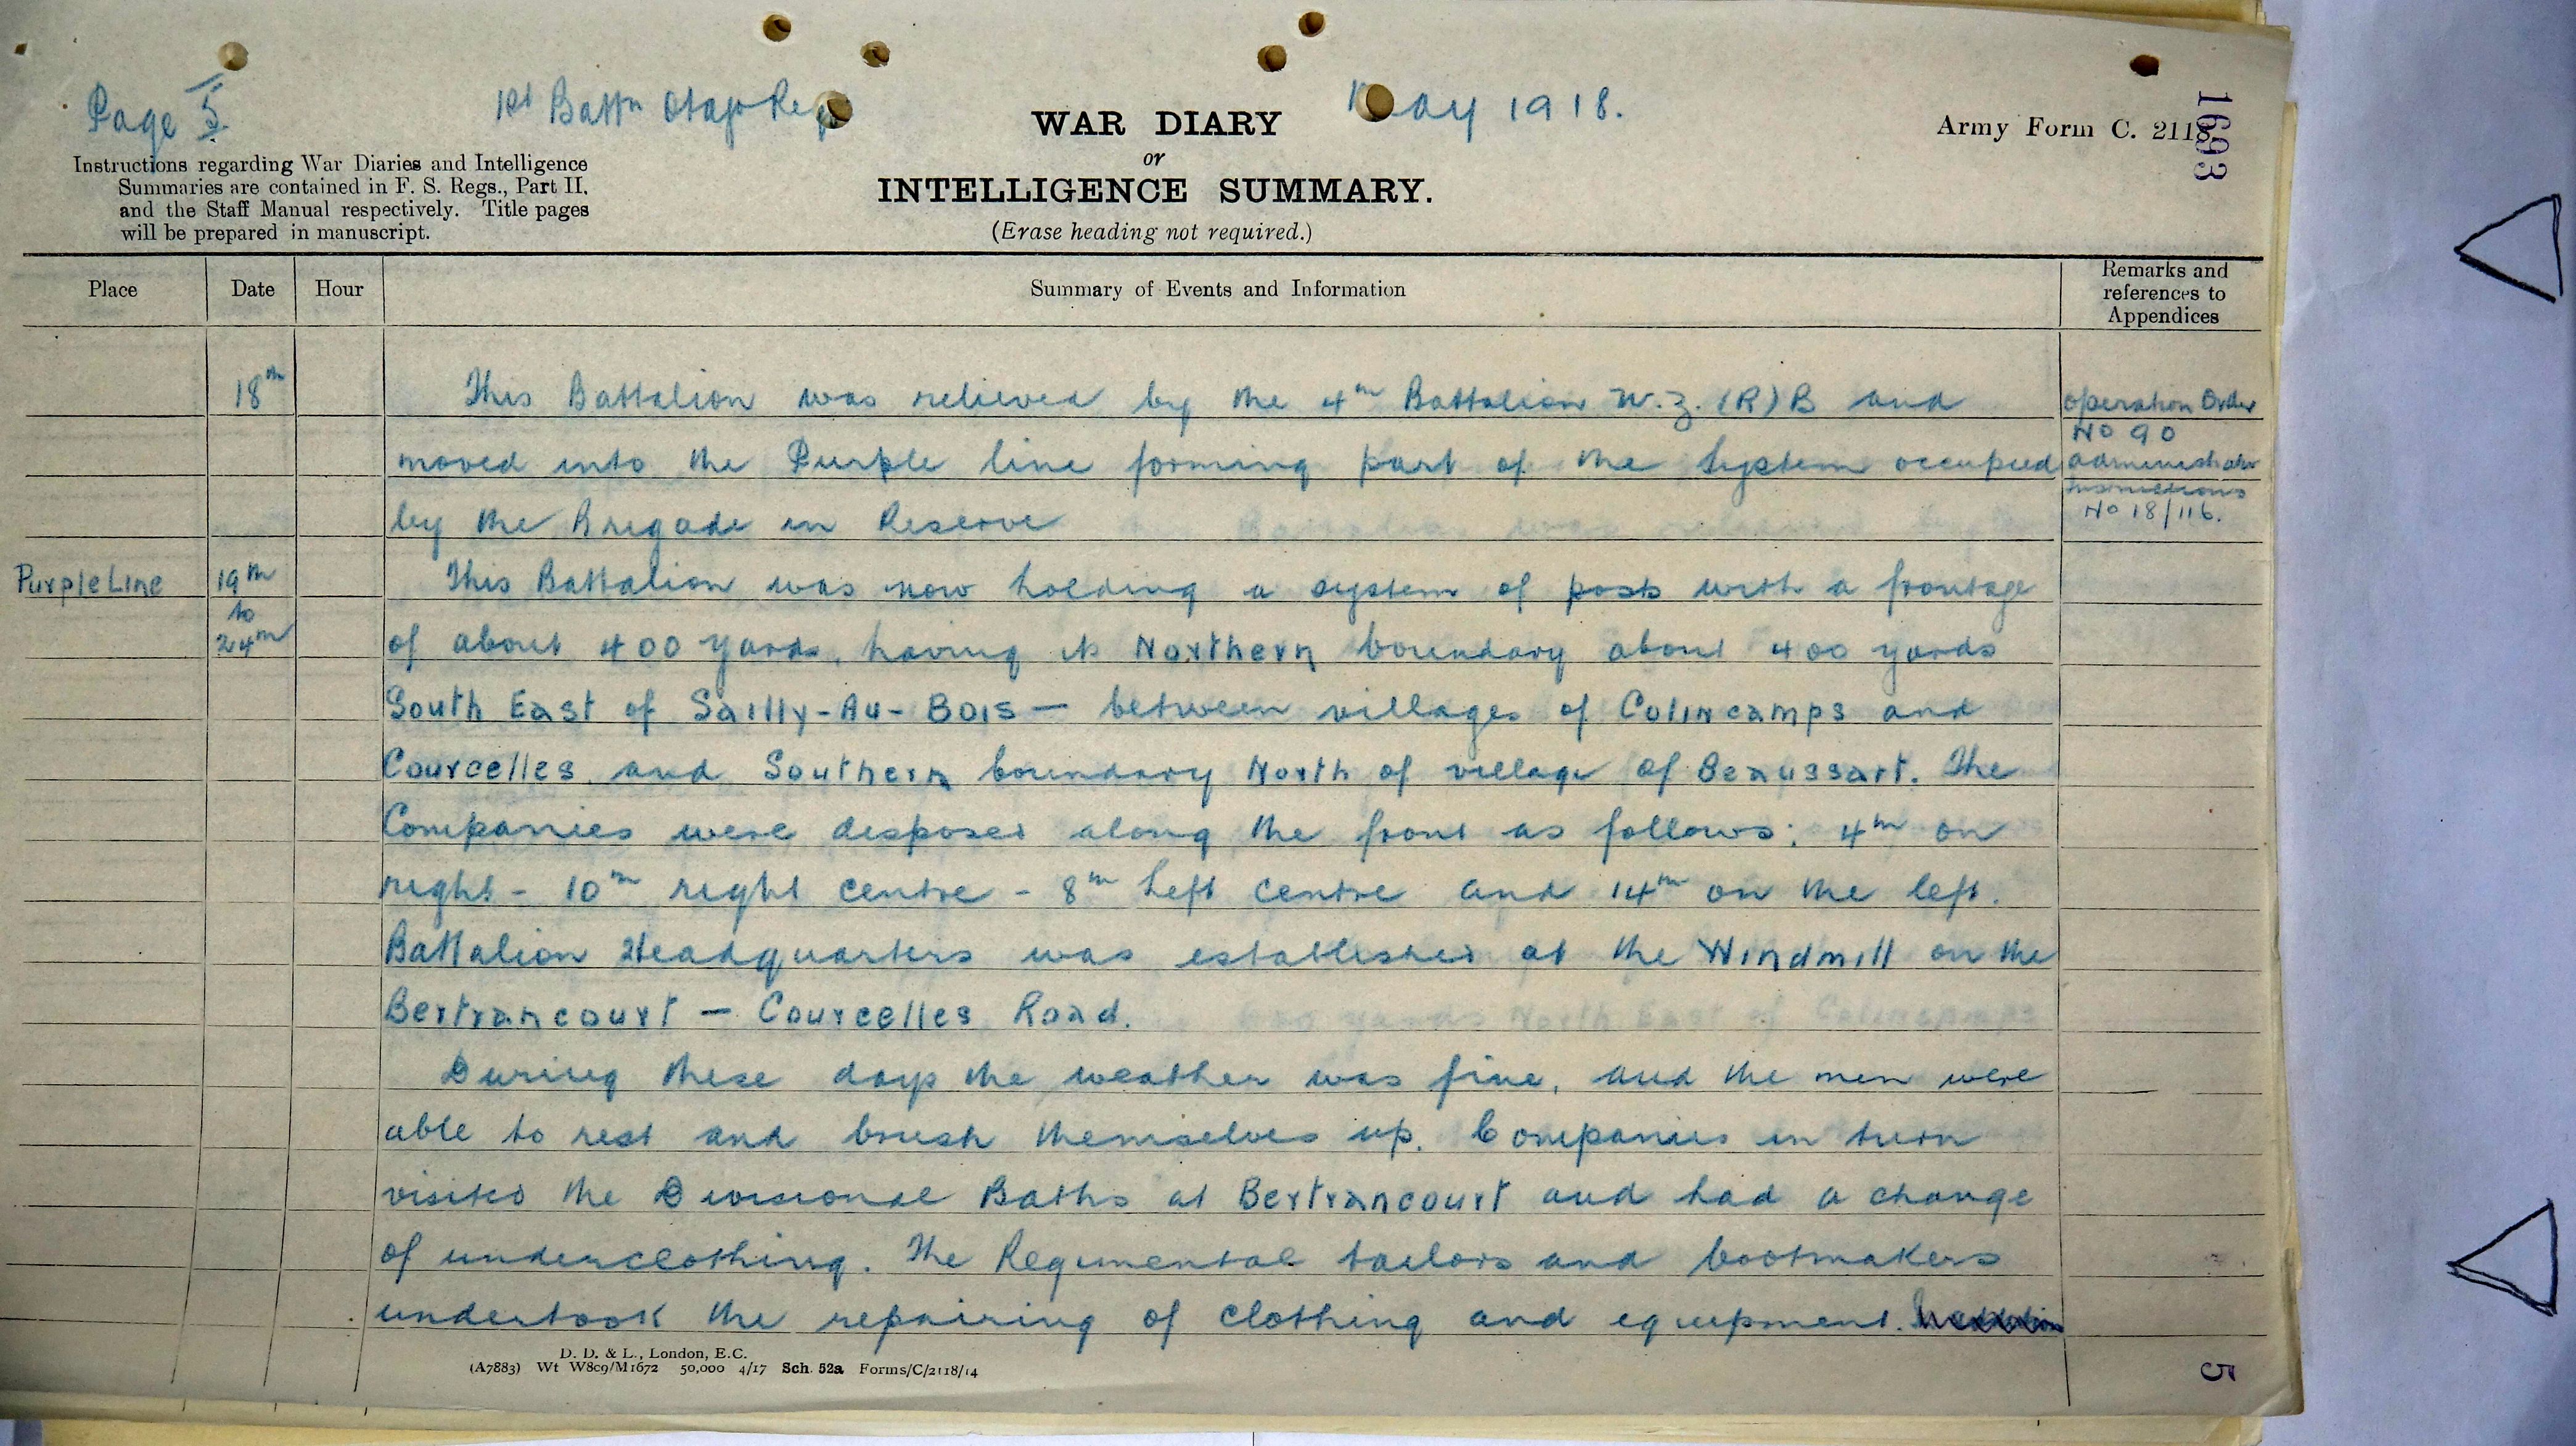 Page 5
1st Battn Otago Reg
May 1918.
WAR DIARY
or
INTELLIGENCE SUMMARY.
(Erase heading not required.)
Army Form C. 2118.
1693
Instructions regarding War Diaries and Intelligence
Summaries are contained in F. S. Regs., Part II.
and the Staff Manual respectively. Title pages
will be prepared in manuscript.
Place Date Hour Summary of Events and Information Remarks and
references to
Appendices
18th This Battalion was relieved by the 4th Battalion N.Z. (R) B and Operation Order
No 90
moved into the Purple line forming part of the System occupied Administrative
Instructions
by the Brigade in Reserve No 18/116.
Purple Line 19th This Battalion was now holding a system of posts with a frontage
to
24th of about 400 yards, having its Northern boundary about 400 yards
South East of Sailly-Au-Bois — between villages of Colincamps and
Courcelles, and Southern boundary North of village of Beaussart. The
Companies were disposed along the front as follows: 4th on
right - 10th right centre - 8th Left centre and 14th on the left.
Battalion Headquarters was established at the Windmill on the
Bertrancourt — Courcelles Road.
During these days the weather was fine, and the men were
able to rest and brush themselves up. Companies in turn
visited the Divisional Baths at Bertrancourt and had a change
of underclothing. The Regimental tailors and bootmakers
undertook the repairing of clothing and equipment.
D. D. & L., London, E.C.
(A7883) Wt W809/M1672 50,000 4/17 Sch. 52a Forms/C/2118/14
5